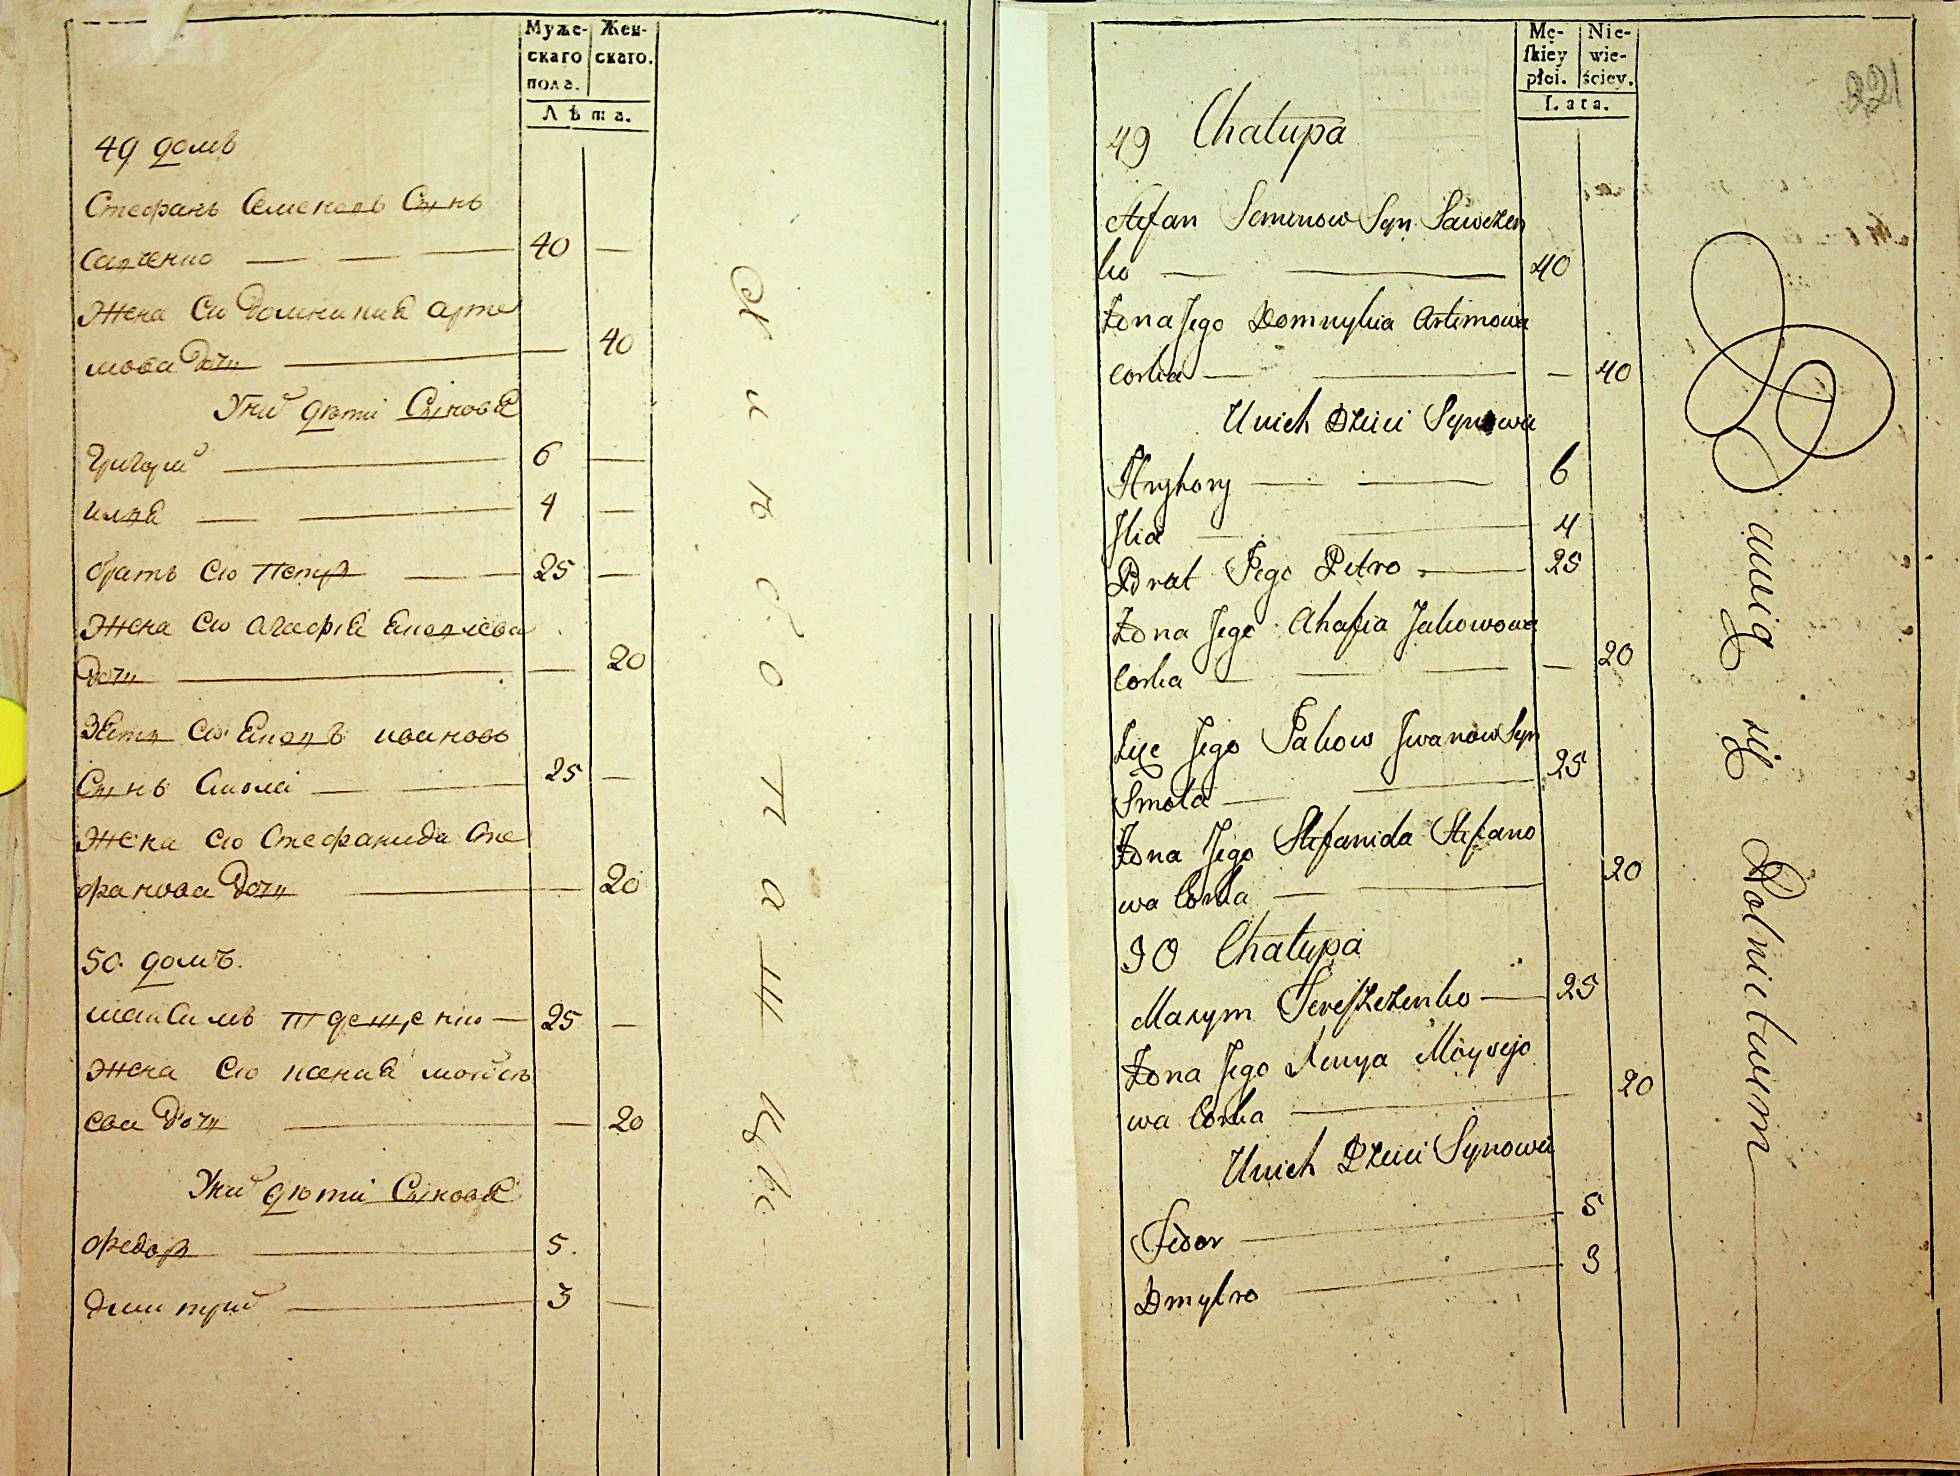 Муже-
скаго
пола.
Жен-
скаго.
Лѣта.
49 домъ
Стефанъ Семеновъ Сынъ
Савченко — — — 40 —
Жена его Домникия Арте
мова Дочь — — 40
У них дѣти Сыновя
Григорий — 6 —
илия — — 4 —
братъ его Петръ — — 25 —
Жена его Агафія Яковлева
Дочь — — 20
Зять его Яковъ ивановъ
Сынъ Смола — — 25 —
Жена его Стефанида Сте
фанова Дочь — — 20
50 домъ.
максимъ терещенко — 25 —
Жена его ксения мойсѣ
ева Дочь — — 20
У них дѣти Сыновя
Федоръ — 5.
Дмитрий — 3 —
Mę-
ſkiey
płci.
Nie-
wie-
ściey.
Lata.
221
49 Chałupa
Stefan Semenow Syn Sawczen
ko — — 40
Żona Jego Domnykia Artimowa
Corka — — — 40
U nich Dzieci Synowie
Hryhory — — 6
Ilia — — 4
Brat Jego Petro — 25
Żona Jego Ahafia Jakowowa
Corka — — — — 20
Zięć Jego Jakow Iwanow Syn
Smoła — — 25
Żona Jego Stefanida Stefano
wa Corka — — 20
50 Chałupa
Maxym Tereszczenko — 25
Żona Jego Xenya Moysejo
wa Corka — 20
U nich Dzieci Synowie
Fedor — 5
Dmytro — 3